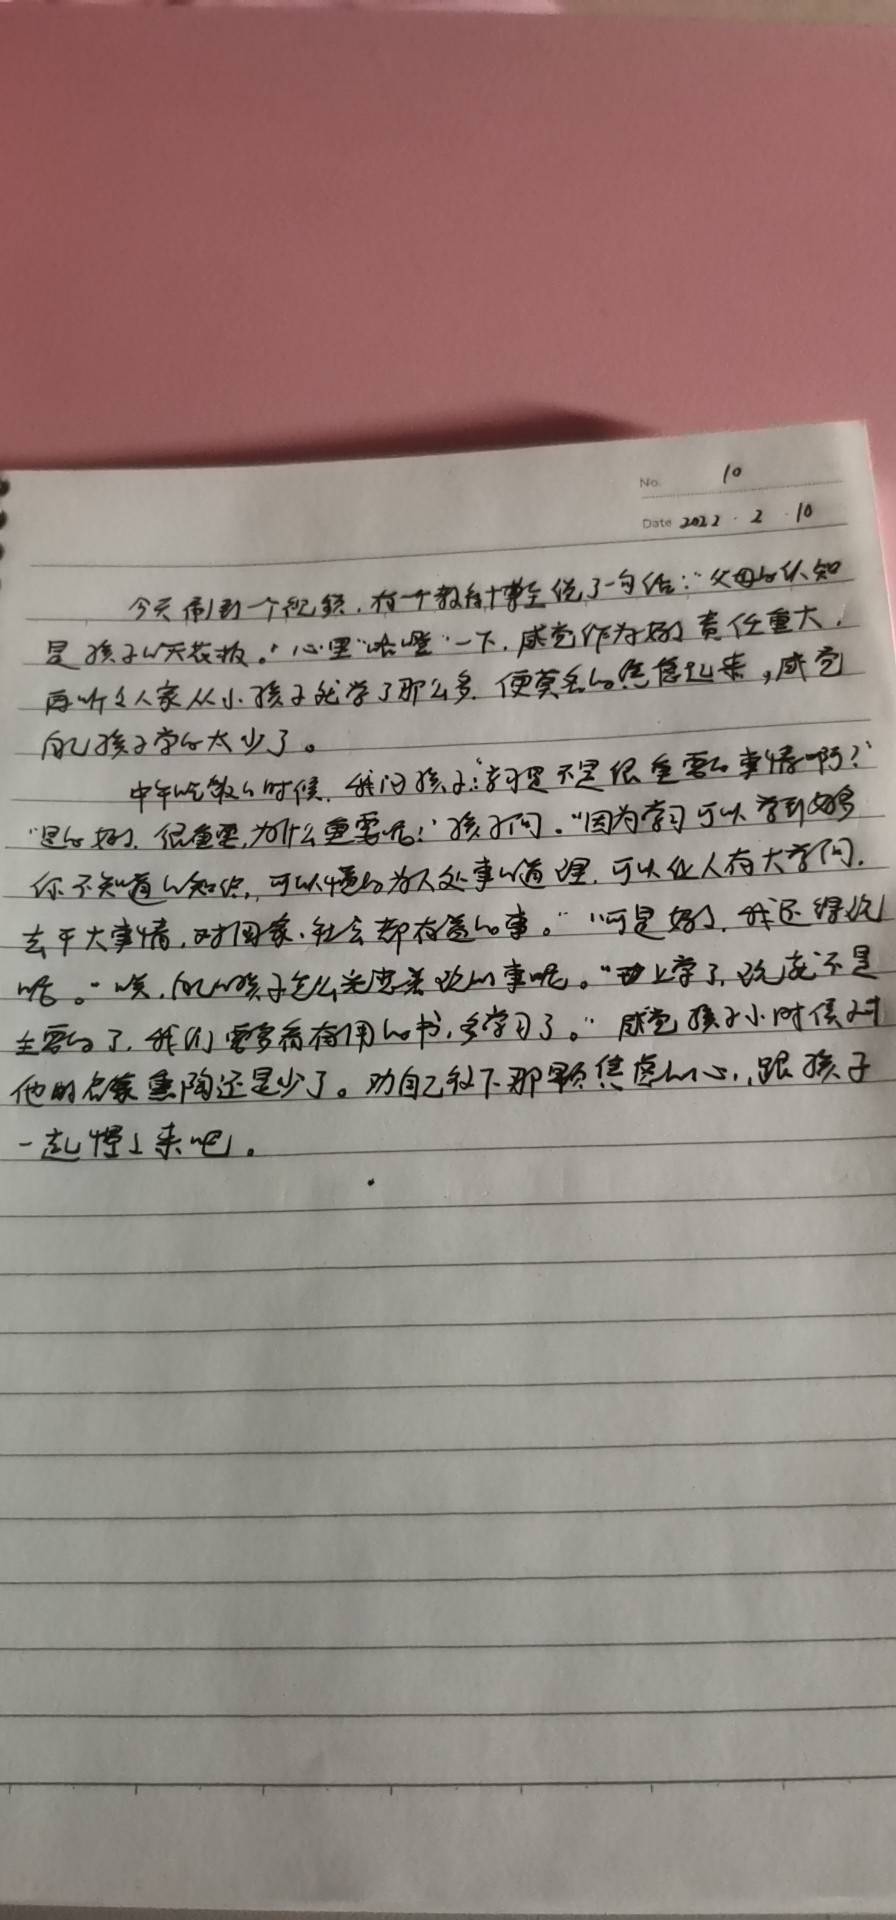 No. 10
Date 2022 · 2 · 10
今天刷到一个视频，有一个教育博主说了一句话：“父母的认知
是孩子的天花板。”心里“咯噔”一下，感觉作为妈妈责任重大，
再听了人家从小孩子就学了那么多，便莫名的焦虑起来，感觉
自己孩子学的太少了。
中午吃饭的时候，我问孩子：“学习是不是很重要的事情啊？”
“是的妈妈，很重要，为什么重要呢？”孩子问。“因为学习可以学到好多
你不知道的知识，可以懂的为人处事的道理，可以让人有大学问，
去干大事情，对国家、社会都有益的事。”“可是妈妈，我还得玩
呢。”唉，自己的孩子怎么光想着玩的事呢。“上学了，玩就不是
主要的了，我们要多看有用的书，多学习了。”感觉孩子小时候对
他的启蒙熏陶还是少了。劝自己放下那颗焦虑的心，跟孩子
一起慢慢来吧。